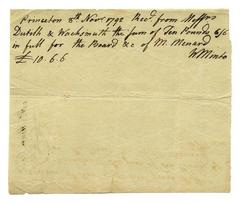 Princeton 8th Novr. 1792 Recd. from Messrs
Dutilh & Wachsmuth the sum of Ten Pounds 6/6
in full for the Board &c of M. Menard
£10.6.6 W Minto